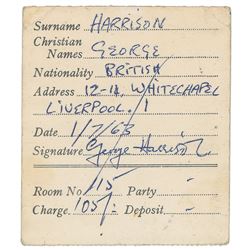 Surname HARRISON
Christian
Names GEORGE
Nationality BRITISH
Address 12-14, WHITECHAPEL
LIVERPOOL. 1
Date 1/7/63
Signature George Harrison
Room No 115 Party -
Charge 105/- Deposit -